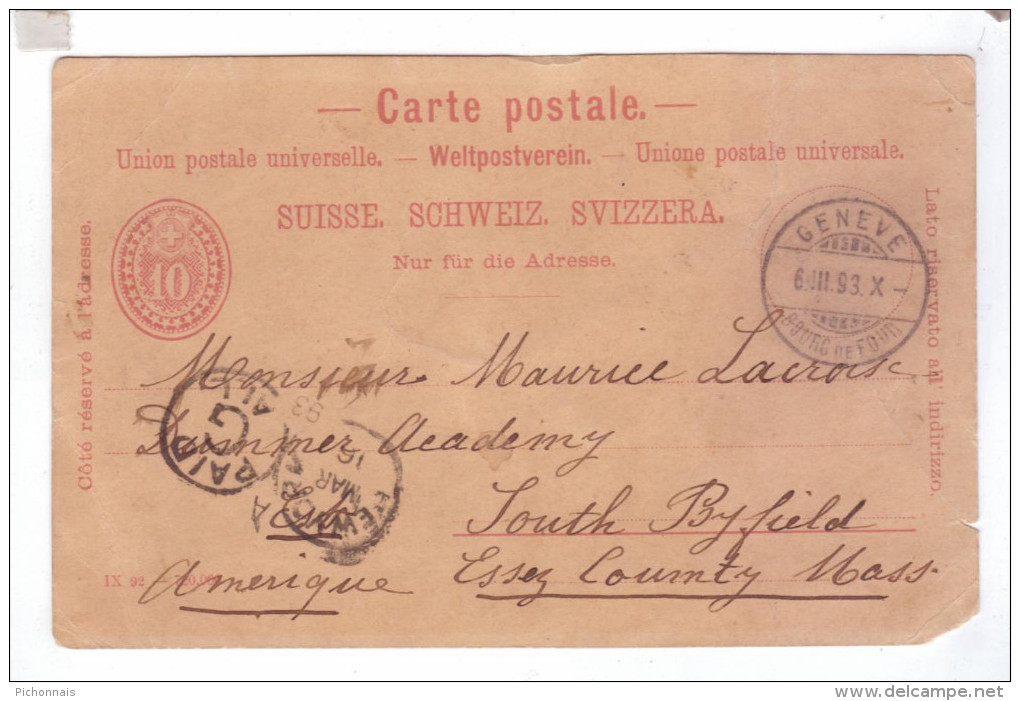 — Carte postale. —
Union postale universelle. — Weltpostverein. — Unione postale universale.
SUISSE. SCHWEIZ. SVIZZERA.
Nur für die Adresse.
Côté réservé à l'adresse.
Lato riservato all' indirizzo.
10
GENEVE
6.III.93.X
BOURG DE FOUR
Monsieur Maurice Lacroix
Dummer Academy
South Byfield
Essex County Mass.
Amerique
PAID
G
ALL
NEW YORK
MAR
16
93
A
IX 92
Pichonnais
www.delcampe.net